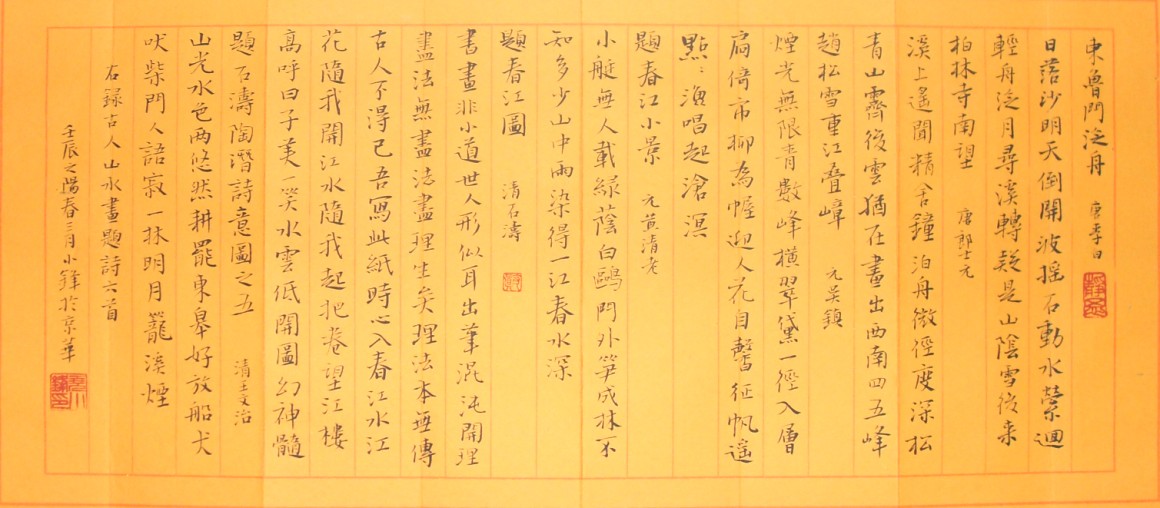 東魯門泛舟 唐李白
日落沙明天倒開波搖石動水縈迴
輕舟泛月尋溪轉疑是山陰雪後來
柏林寺南望 唐郎士元
溪上遙聞精舍鐘泊舟微徑度深松
青山霽後雲猶在畫出西南四五峰
趙松雪重江叠嶂 元吳鎮
煙光無限青數峰橫翠黛一徑入層
扁倚市柳為幄迎人花自馨征帆遙
點點漁唱起滄溟
題春江小景 元黃清老
小艇無人載綠蔭白鷗門外笋成林不
知多少山中雨染得一江春水深
題春江圖 清石濤
書畫非小道世人形似耳出筆混沌開理
盡法無盡法盡理生矣理法本無傳
古人不得已吾寫此紙時心入春江水江
花隨我開江水隨我起把卷望江樓
高呼曰子美一笑水雲低開圖幻神髓
題石濤陶潛詩意圖之五 清王文治
山光水色兩悠然耕罷東皋好放船犬
吠柴門人語寂一抹明月籠溪煙
右録古人山水畫題詩六首
壬辰之陽春三月小鋒於京華